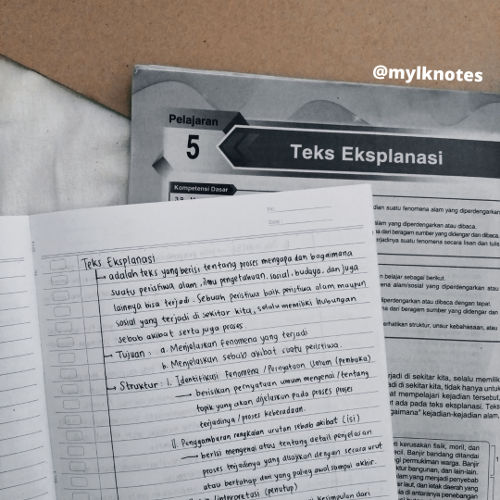 @mylknotes
Pelajaran
5
Teks Eksplanasi
Kompetensi Dasar
dian suatu fenomena alam yang diperdengarkan
alam yang diperdengarkan atau dibaca.
dari beragam sumber yang didengar dan dibaca.
rjadinya suatu fenomena secara lisan dan tulis
n belajar sebagai berikut.
ena alam/sosial yang diperdengarkan atau dibaca
diperdengarkan atau dibaca dengan tepat.
dari beragam sumber yang didengar dan
erhatikan struktur, unsur kebahasaan, atau
rjadi di sekitar kita, selalu memilik
adi di sekitar kita, tidak hanya untuk
at mempelajari kejadian tersebut,
rt ada pada teks eksplanasi. Teks
gaimana" kejadian-kejadian alam,
kerusakan fisik, moril, dan
ecil. Banjir bandang ditandai
gi permukiman warga. Banjir
ktur bangunan, dan lain-lain.
lam yang menjadi penyebab
ar laut, dan letak daerah yang
di antaranya penebangan
No.
Date
Teks Eksplanasi
adalah teks yang berisi tentang proses mengapa dan bagaimana
suatu peristiwa alam, ilmu pengetahuan, sosial, budaya, dan juga
lainnya bisa terjadi. Sebuah peristiwa baik peristiwa alam maupun
sosial yang terjadi di sekitar kita, selalu memiliki hubungan
sebab akibat serta juga proses
Tujuan : a. Menjelaskan fenomena yang terjadi
b. Menjelaskan sebab akibat suatu peristiwa.
Struktur : I. Identifikasi Fenomena / Pernyataan Umum (pembuka)
→ berisikan pernyataan umum mengenai / tentang
topik yang akan dijelaskan pada proses proses
terjadinya / proses keberadaan.
II. Penggambaran rangkaian urutan sebab akibat (isi)
→ berisi mengenai atau tentang detail penjelasan
proses terjadinya yang disajikan dengan secara urut
atau bertahap dari yang paling awal sampai akhir.
(interpretasi) (penutup)
kesimpulan dari